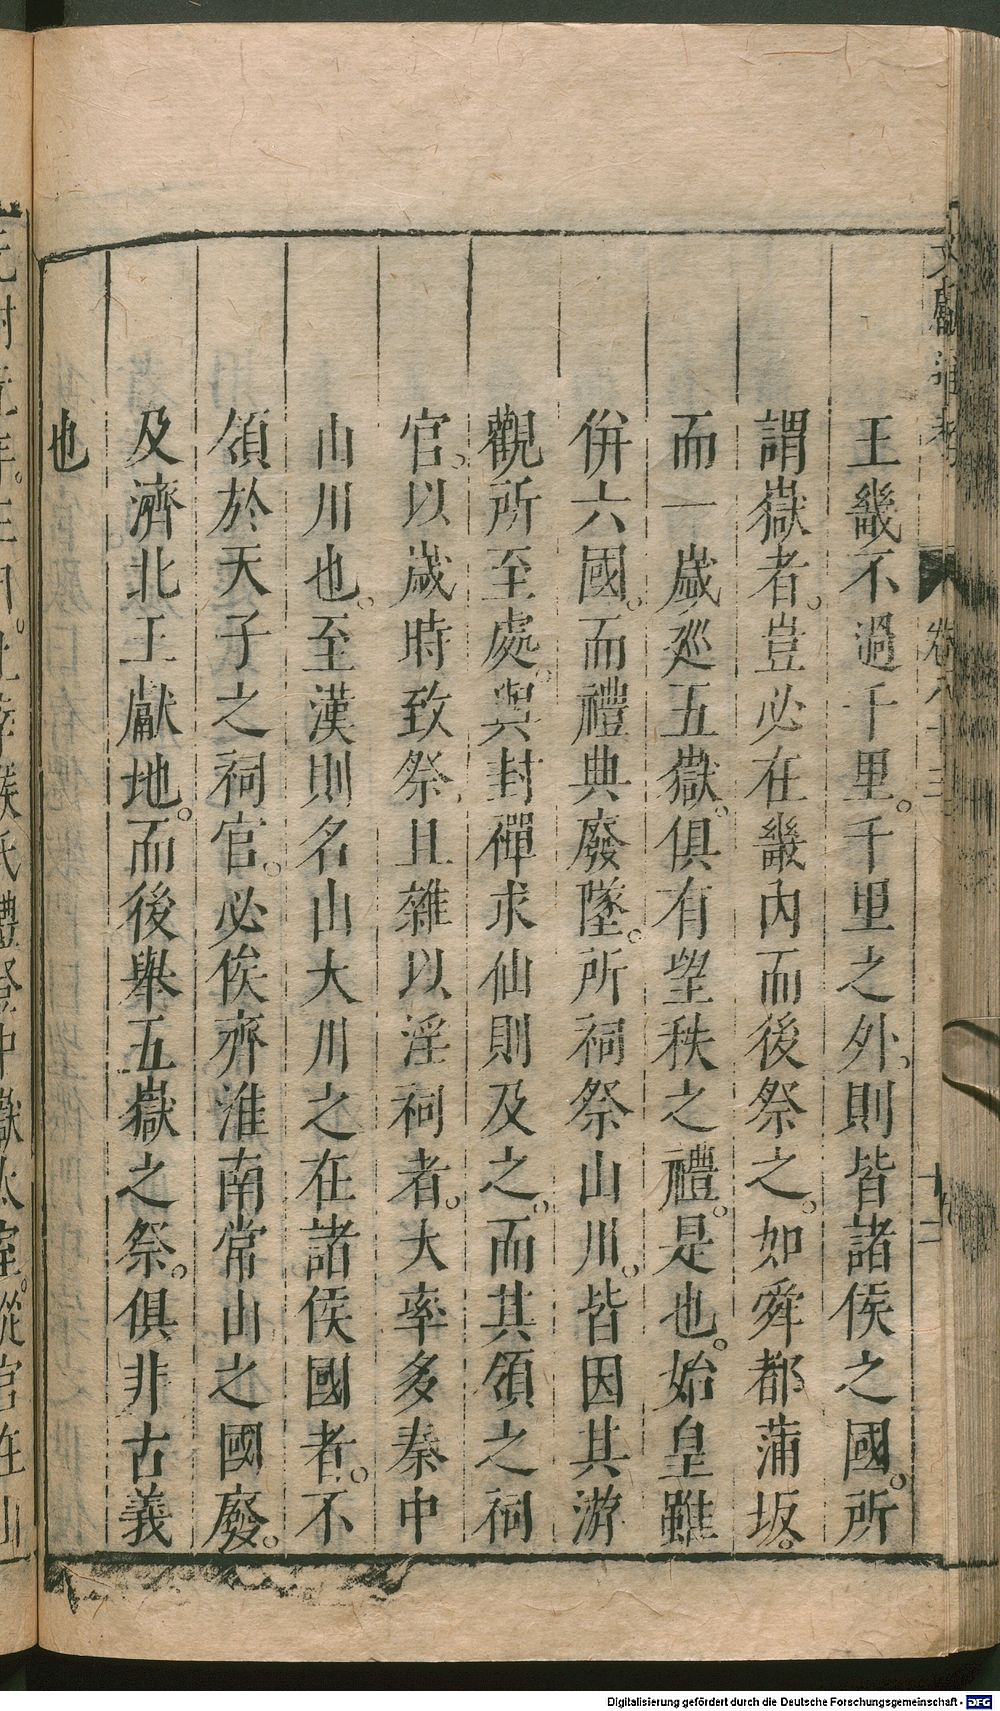 王畿不過千里。千里之外、則皆諸侯之國。所
謂嶽者。豈必在畿內而後祭之。如舜都蒲坂。
而一歲巡五嶽。俱有望秩之禮。是也。始皇雖
併六國。而禮典廢墜。所祠祭山川。皆因其游
觀所至處。與封禪求仙則及之。而其領之祠
官。以歲時致祭、且雜以淫祠者。大率多秦中
山川也。至漢則名山大川之在諸侯國者。不
領於天子之祠官。必俟齊淮南常山之國廢。
及濟北王獻地。而後舉五嶽之祭。俱非古義
也
卷八十三
Digitalisierung gefördert durch die Deutsche Forschungsgemeinschaft - DFG